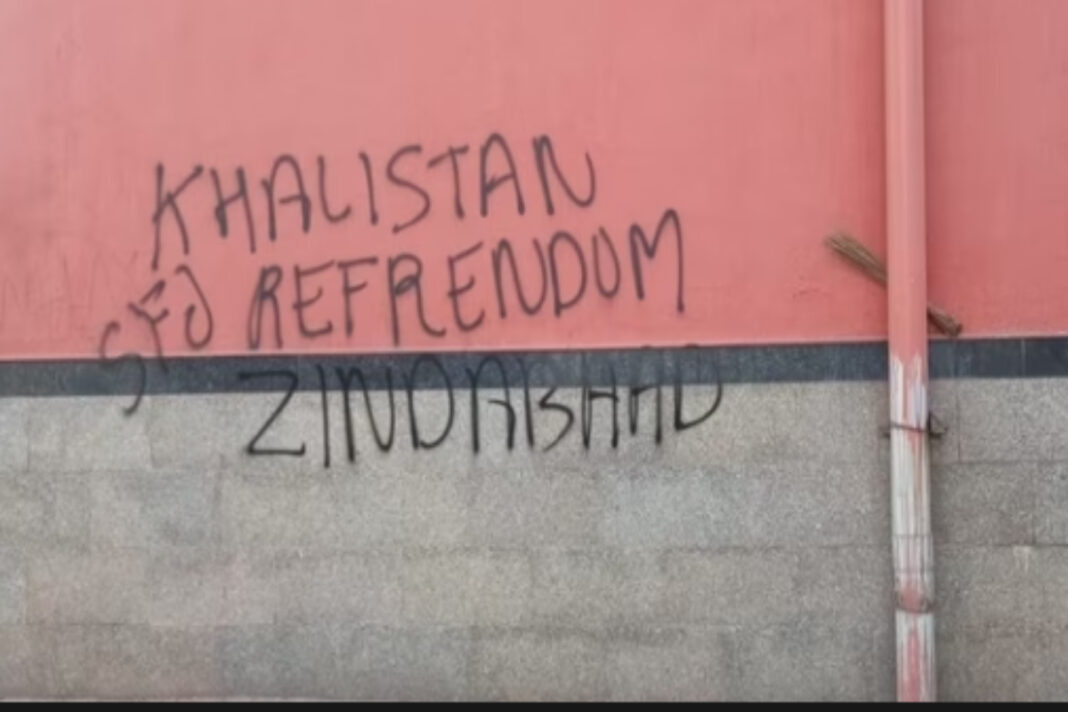 KHALISTAN
SFJ REFRENDUM
ZINDABHAD